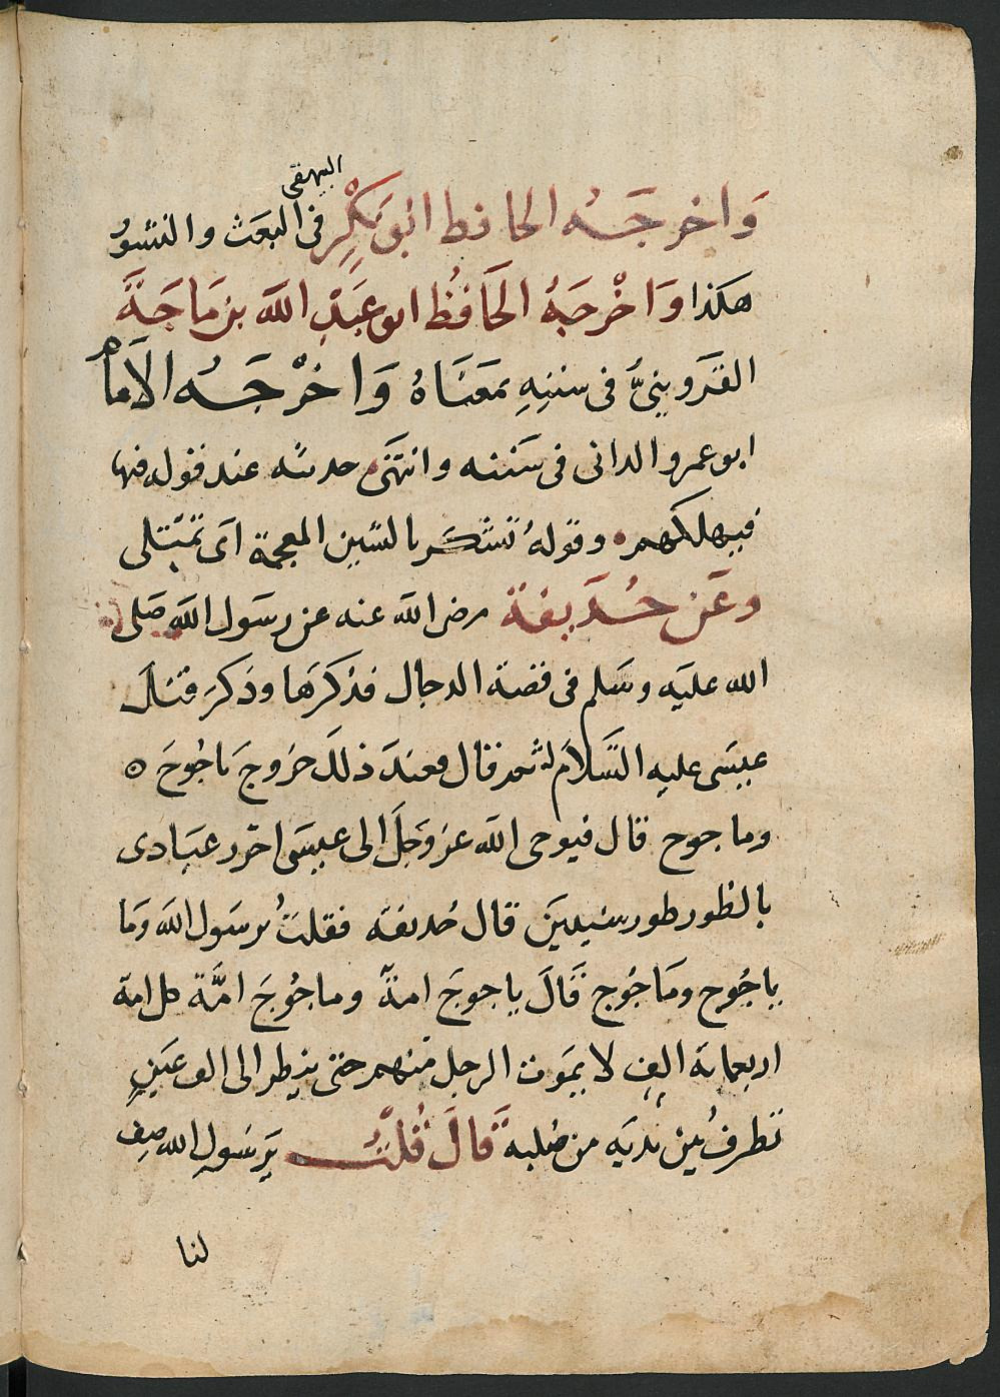 البيهقى
وَاخرجَـــهُ الحافظ ابو بَكْرٍ فى البَعَث والنشورُ
هكذا وَاخْرجَهُ الحَافظُ ابو عَبَدِ اللهَ بن مَاجَةَ
القَزوينىَّ فى سننِهِ بمَعَنَاهُ وَاخرْجَـــهُ الاَمامُ
ابو عمرو الدانى فى سَننه وانتَهَى حديثه عند قوله فيها
فيهلكهم وقولهُ تَشْكَر بالشين المعجمة اَى تمتلى
وعَن حُــذَيفة رضى اللهَ عنه عن رسَول اللهَ صَلى
الله عليَه وسَلم فى قصة الدجال فذكرَها وذكرَ قتالَ
عيسَى عليه السَّلاَم ثم قال فعندَ ذلكَ خرَوجَ ياجُوجَ ه
وماجوج قال فيوحى اللهَ عزوَجَلَ الى عيسَى احرز عبَادى
بالطور طور سنيينَ قال حُديفه فقلتُ يرسَول اللهَ وَما
ياجُوج ومَاجُوج قَالَ ياجوجَ امةً وماجُوجَ امَّة كل امة
اربعماية الفٍ لا يمَوت الرجل منهم حتى ينظر الى الف عيَنٍ
تطرفُ بين يديَه من صُلبه قَالَ قُلتُ يَرسَولِ الله صِف
لنا